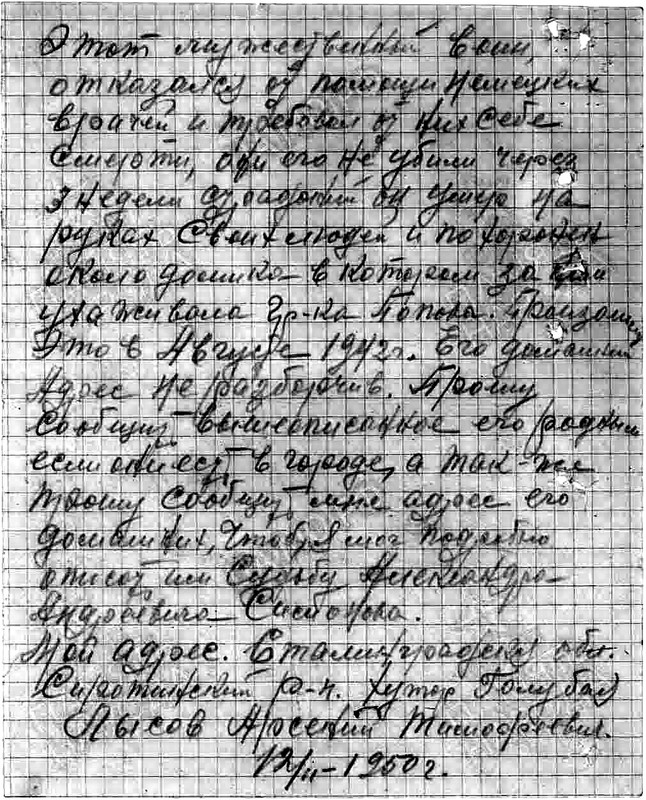 Этот мужественный воин,
отказался от помощи немецких
врачей и требовал от них себе
смерти, они его не убили через
3 недели страданий он умер на
руках своих людей и похоронен
около домика в котором за
ухаживала гр-ка Попова. Произошло
Это в Августе 1942 г. Его домашний
Адрес не разборчив. Прошу
сообщить вышеописанное его родным
если они есть в городе, а так-же
прошу сообщить мне адрес его
домашних, чтобы я мог подробно
описать им судьбу Александра
Андреевича
Мой адрес. Сталинградская обл.
Сиротинский р-н. хутор Голубая
Лысов Арсений Тимофеевич.
12/II-1950 г.